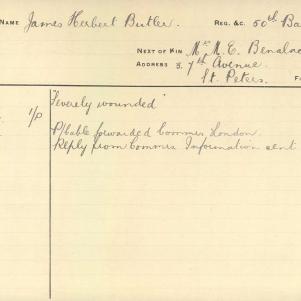 NAME James Herbert Butler. REG. &C. 50th Ba
NEXT OF KIN Mrs M. E. Benalac
ADDRESS 3. 7th Avenue.
St. Peters. F
"Severely wounded"
1/0 P/Cable forwarded Commrs. London.
Reply from Commrs Information sent